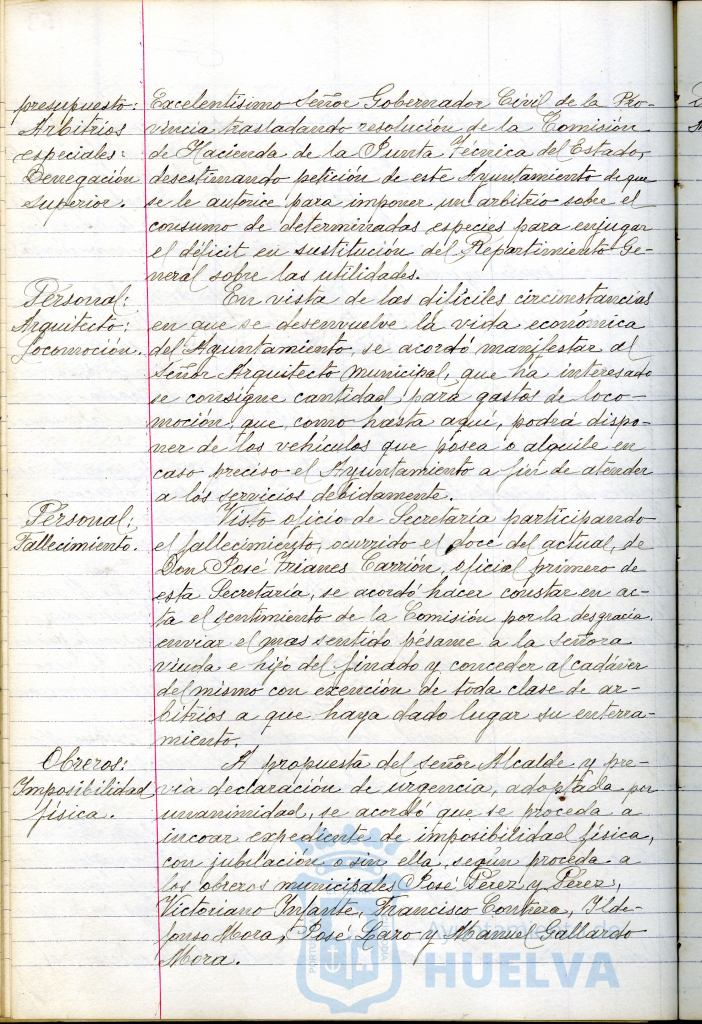 presupuesto:
Arbitrios
especiales:
Denegación
superior.
Excelentísimo Señor Gobernador Civil de la Pro-
vincia trasladando resolución de la Comisión
de Hacienda de la Junta Técnica del Estado,
desestimando petición de este Ayuntamiento de que
se le autorice para imponer un arbitrio sobre el
consumo de determinadas especies para enjugar
el déficit en sustitución del Repartimiento Ge-
neral sobre las utilidades.
Personal:
Arquitecto:
Locomoción.
En vista de las difíciles circunstancias
en que se desenvuelve la vida económica
del Ayuntamiento, se acordó manifestar al
Señor Arquitecto municipal, que ha interesado
se consigne cantidad para gastos de loco-
moción, que, como hasta aquí, podrá dispo-
ner de los vehículos que posea o alquile en
caso preciso el Ayuntamiento a fin de atender
a los servicios debidamente.
Personal:
Fallecimiento.
Visto oficio de Secretaría participando
el fallecimiento, ocurrido el doce del actual, de
Don José Trianes Carrión, oficial primero de
esta Secretaría, se acordó hacer constar en ac-
ta el sentimiento de la Comisión por la desgracia,
enviar el mas sentido pésame a la señora
viuda e hijo del finado y conceder al cadáver
del mismo con exención de toda clase de ar-
bitrios a que haya dado lugar su enterra-
miento.
Obreros:
Imposibilidad
física.
A propuesta del señor Alcalde y pre-
via declaración de urgencia, adoptada por
unanimidad, se acordó que se proceda a
incoar expediente de imposibilidad física,
con jubilación o sin ella, según proceda a
los obreros municipales José Pérez y Pérez,
Victoriano Infante, Francisco Contrera, Ilde-
fonso Mora, José Laro y Manuel Gallardo
Mora.
HUELVA